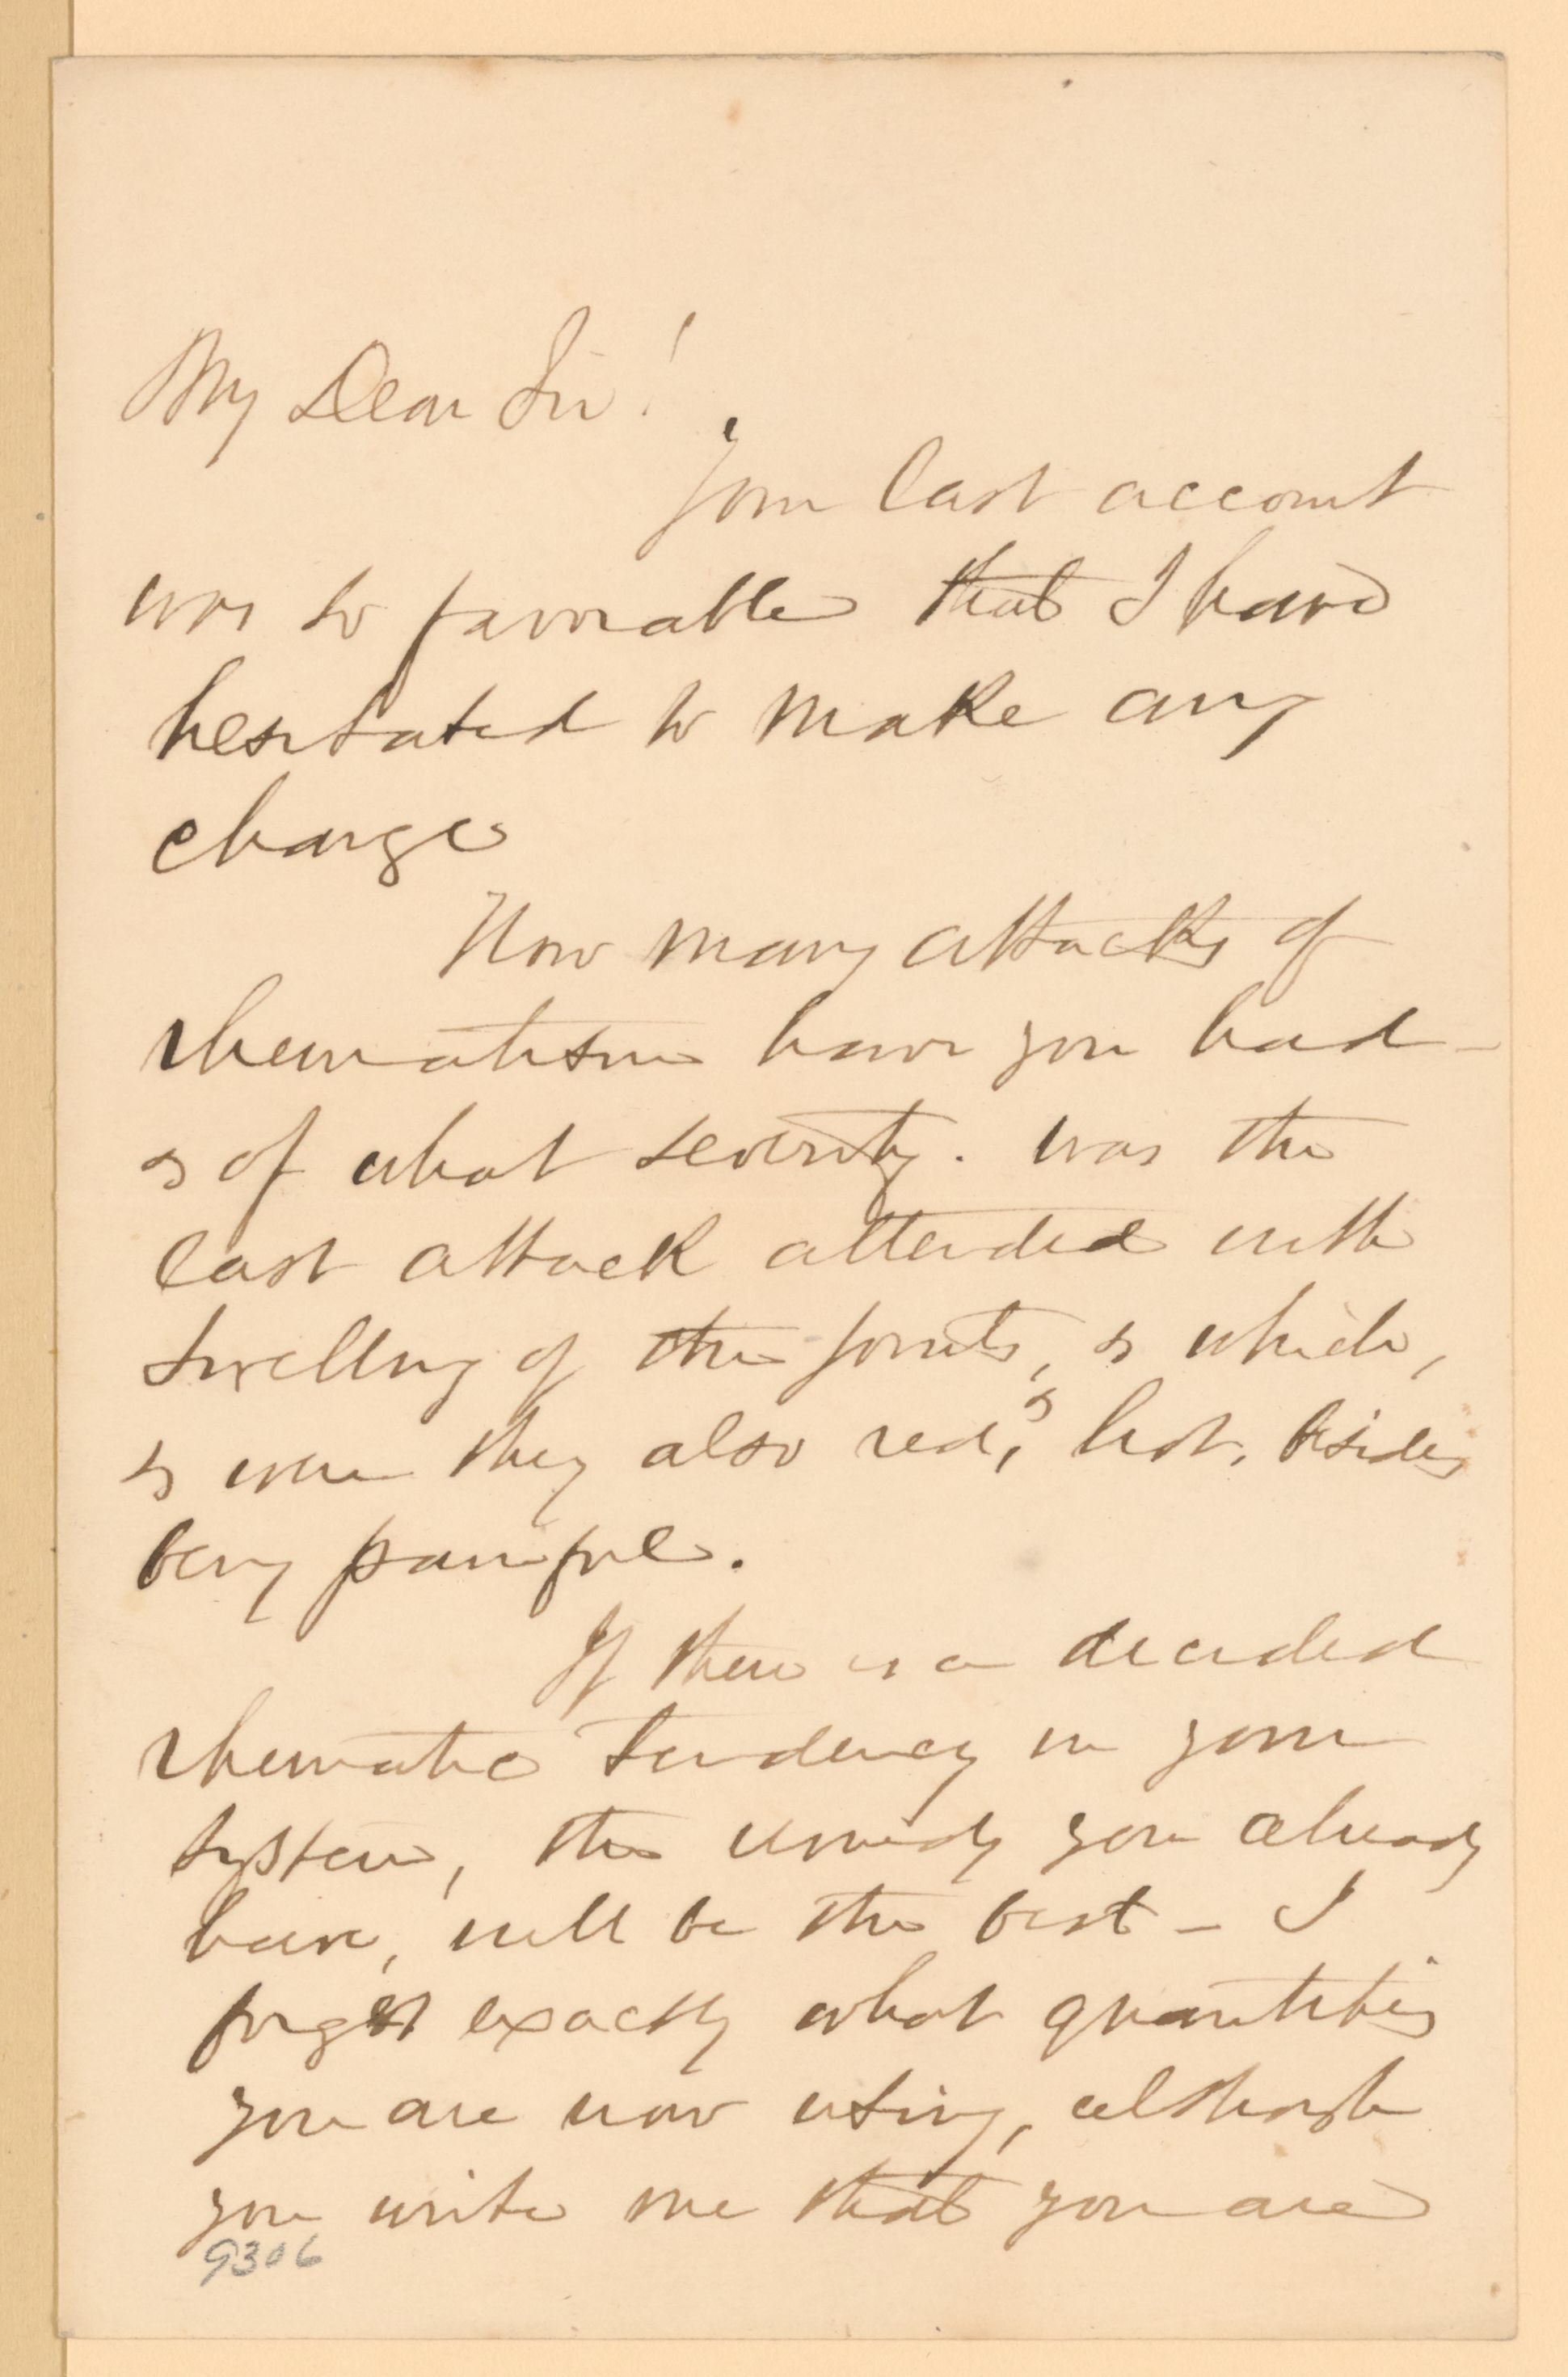 My Dear Sir!
Your last account
was so favorable that I have
hesitated to make any
change
How many attacks of
rheumatism have you had -
& of what severity. was the
last attack attended with
swelling of the joints, & which,
& were they also red, & hot, besides
being painful.
If there is a decided
rheumatic tendency in your
system, the remedy you already
have, will be the best - I
forget exactly what quantities
you are now using, although
you write me that you are
9306